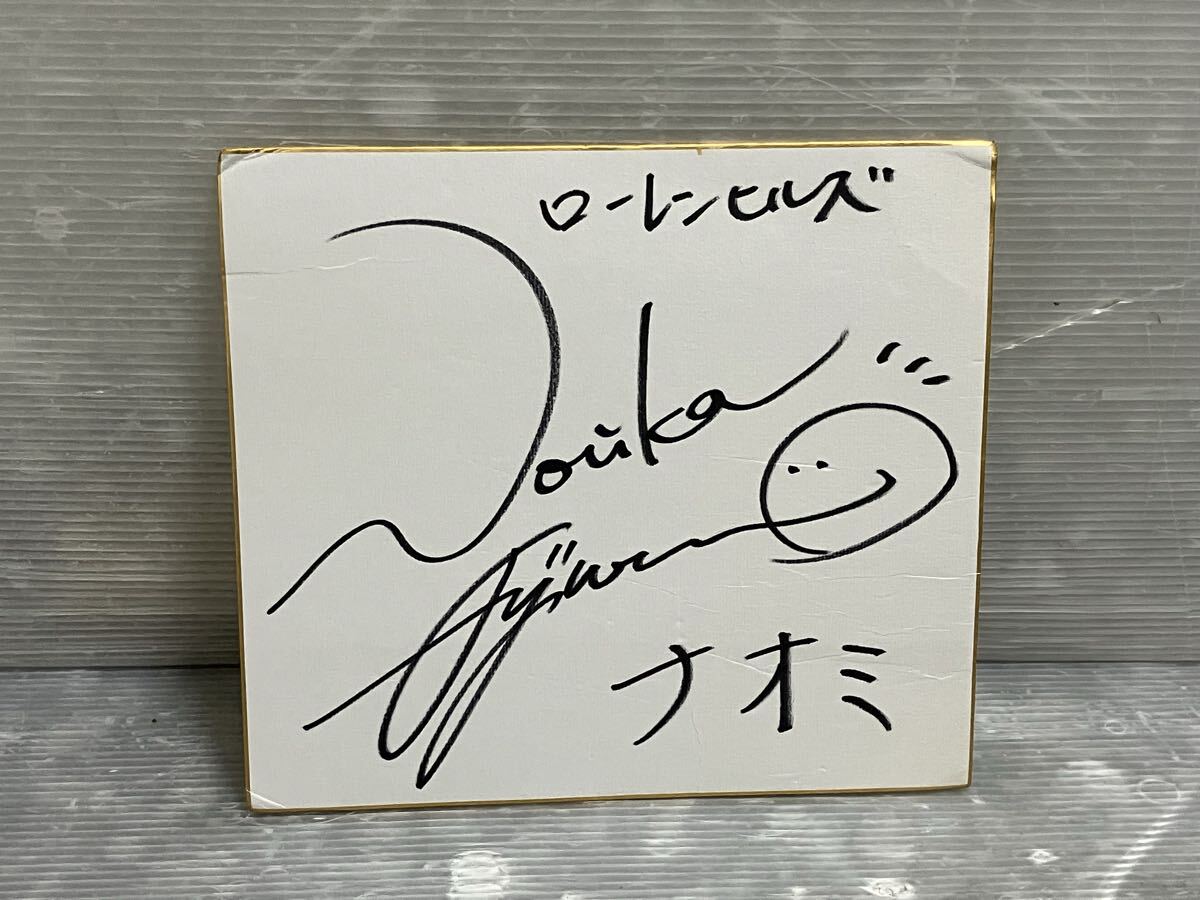 ローレンヒルズ
Norika
Fujiwara
ナオミ